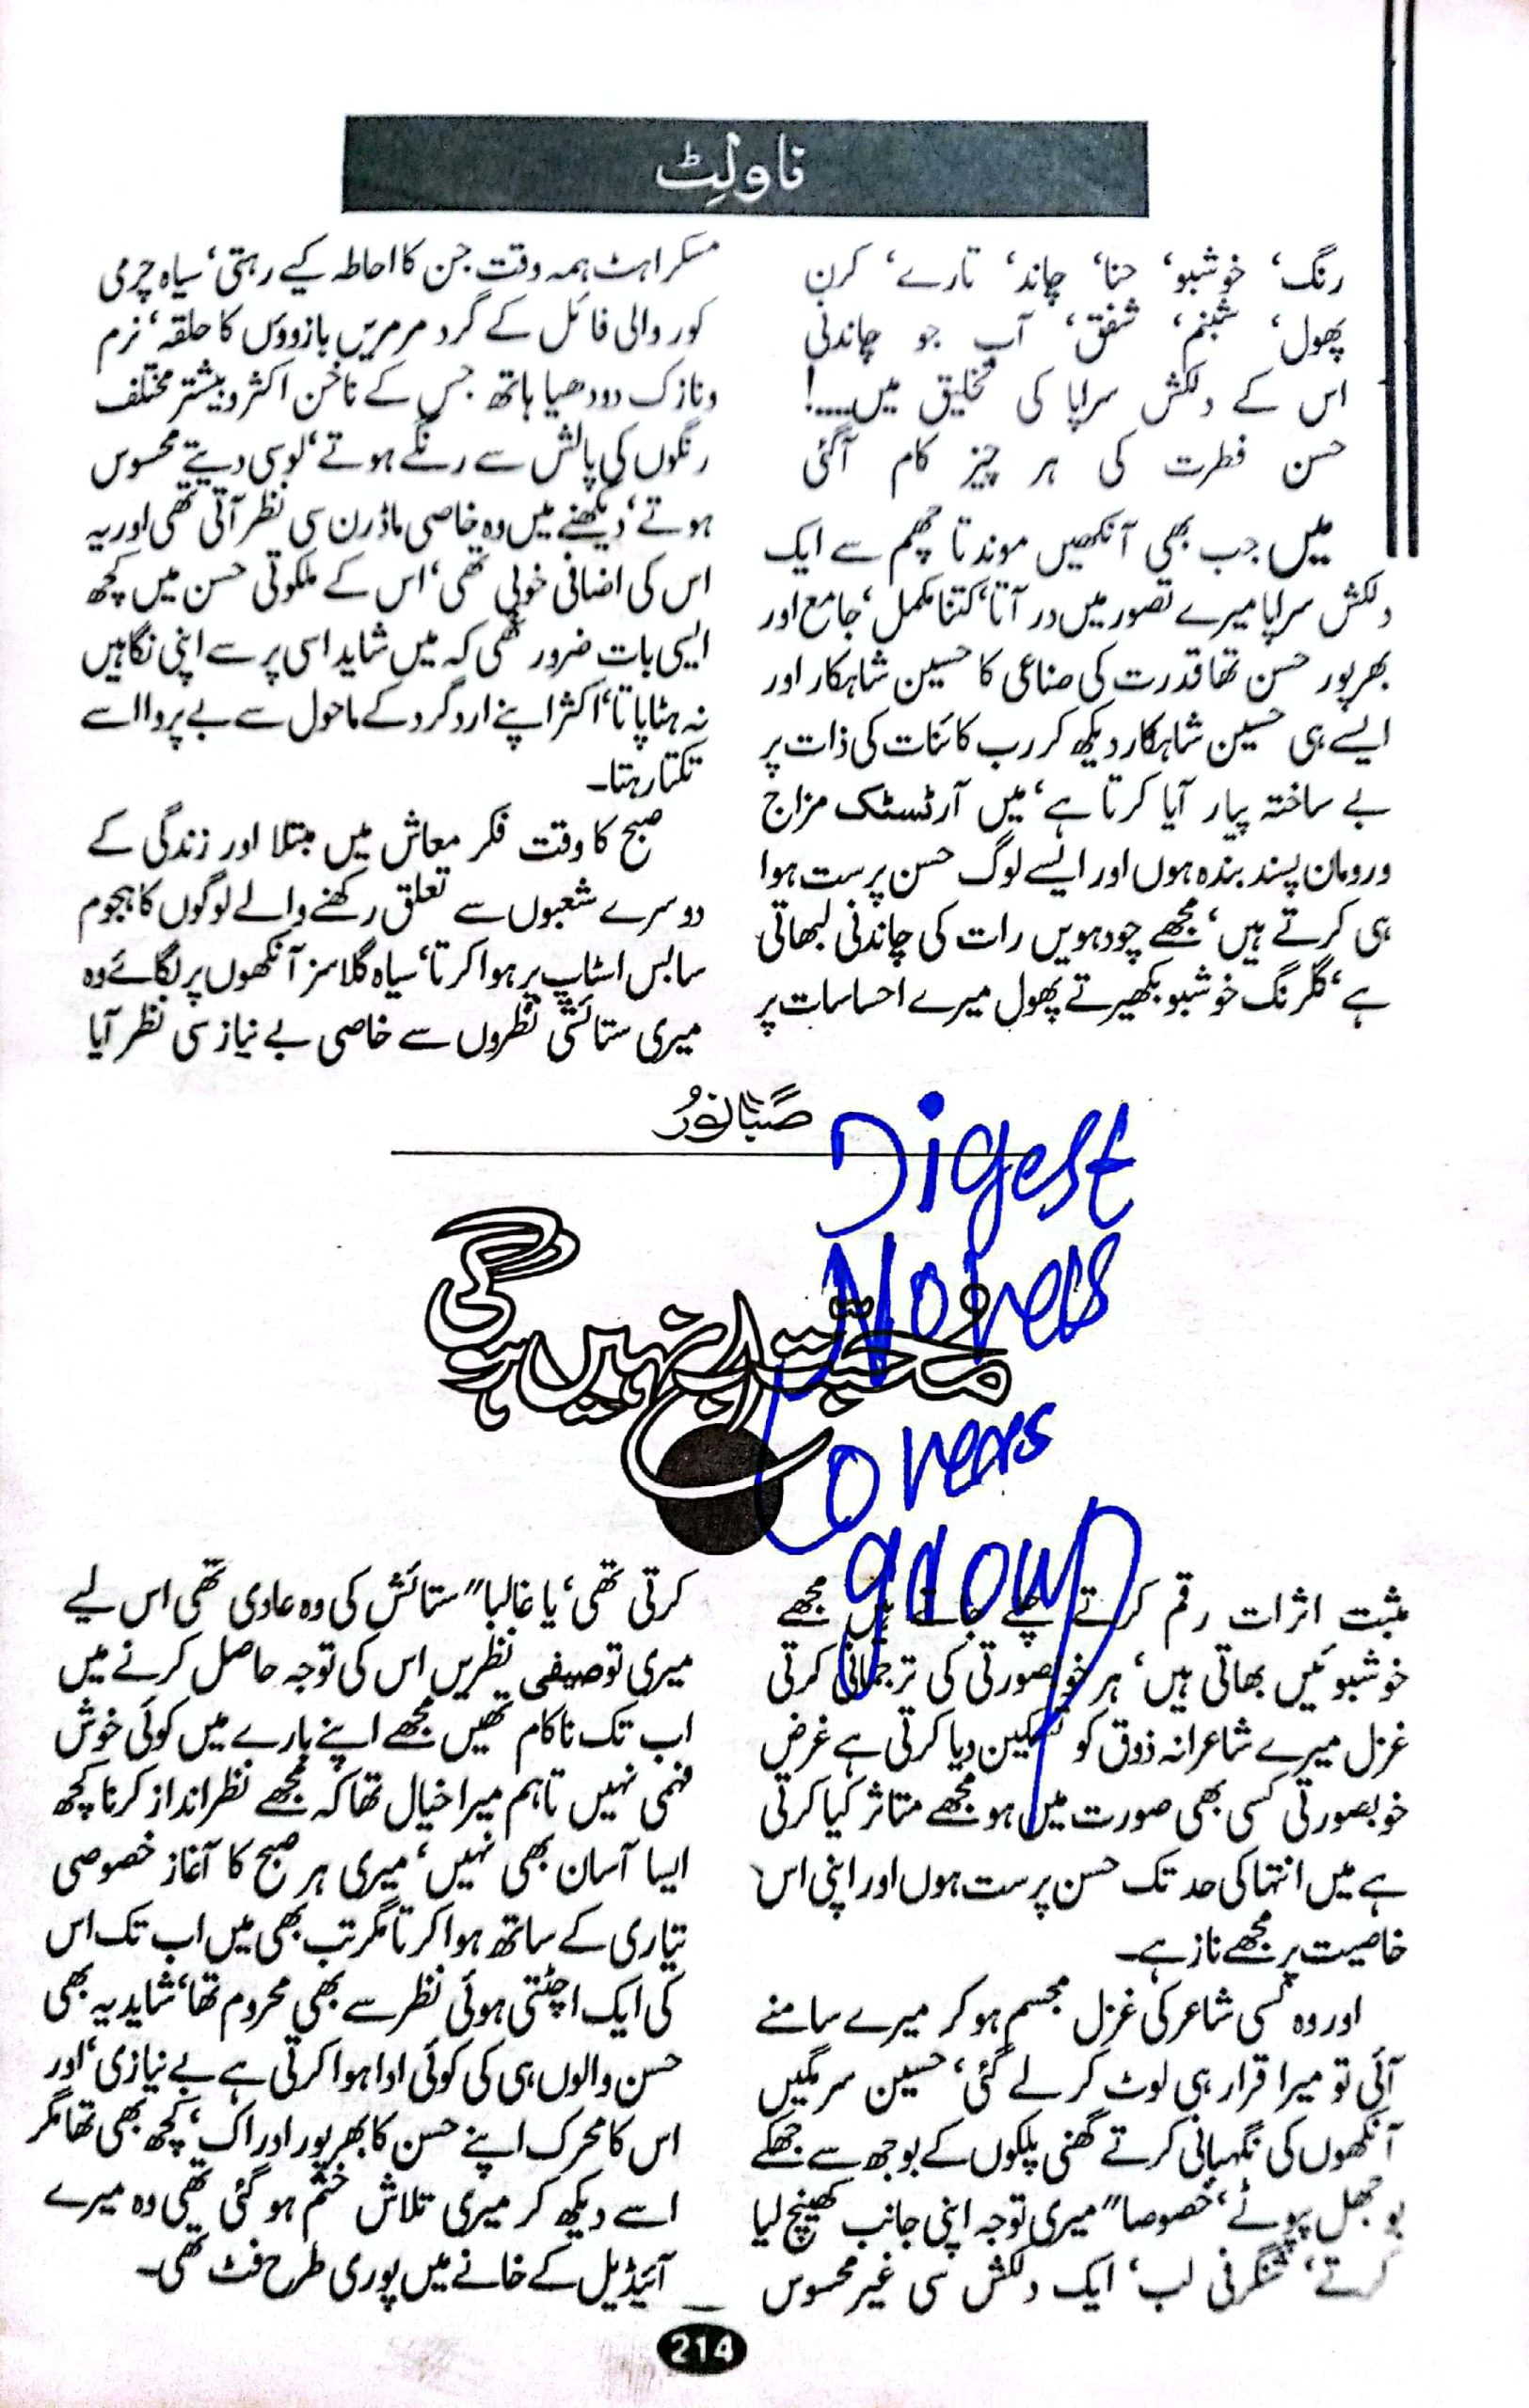 ناولِٹ
رنگ‘ خوشبو‘ حنا‘ چاند‘ تارے‘ کرن
پھول‘ شبنم‘ شفق‘ آب جو چاندنی
اس کے دلکش سراپا کی تخلیق میں....!
حسن فطرت کی ہر چیز کام آگئی
میں جب بھی آنکھیں موندتا چھم سے ایک
دلکش سراپا میرے تصور میں در آتا‘ کتنا مکمل‘ جامع اور
بھرپور حسن تھا قدرت کی صناعی کا حسین شاہکار اور
ایسے ہی حسین شاہکار دیکھ کر رب کائنات کی ذات پر
بے ساختہ پیار آیا کرتا ہے‘ میں آرٹسٹک مزاج
و رومان پسند بندہ ہوں اور ایسے لوگ حسن پرست ہوا
ہی کرتے ہیں‘ مجھے چودہویں رات کی چاندنی لبھاتی
ہے‘ گلرنگ خوشبو بکھیرتے پھول میرے احساسات پر
مثبت اثرات رقم کرتے چلے جاتے ہیں مجھے
خوشبوئیں بھاتی ہیں‘ ہر خوبصورتی کی ترجمانی کرتی
غزل میرے شاعرانہ ذوق کو تسکین دیا کرتی ہے غرض
خوبصورتی کسی بھی صورت میں ہو مجھے متاثر کیا کرتی
ہے میں انتہا کی حد تک حسن پرست ہوں اور اپنی اس
خاصیت پر مجھے ناز ہے۔
اور وہ کسی شاعر کی غزل مجسم ہو کر میرے سامنے
آئی تو میرا قرار ہی لوٹ کر لے گئی‘ حسین سرمگیں
آنکھوں کی نگہبانی کرتے گھنی پلکوں کے بوجھ سے جھکے
بوجھل پپوٹے‘ خصوصا" میری توجہ اپنی جانب کھینچ لیا
کرتے‘ شنگرفی لب‘ ایک دلکش سی غیر محسوس
مسکراہٹ ہمہ وقت جن کا احاطہ کیے رہتی‘ سیاہ چرمی
کور والی فائل کے گرد مرمریں بازوؤں کا حلقہ‘ نرم
و نازک دودھیا ہاتھ جس کے ناخن اکثر و بیشتر مختلف
رنگوں کی پالش سے رنگے ہوتے‘ لو سی دیتے محسوس
ہوتے‘ دیکھنے میں وہ خاصی ماڈرن سی نظر آتی تھی اور یہ
اس کی اضافی خوبی تھی‘ اس کے ملکوتی حسن میں کچھ
ایسی بات ضرور تھی کہ میں شاید اسی پر سے اپنی نگاہیں
نہ ہٹا پاتا‘ اکثر اپنے اردگرد کے ماحول سے بے پروا اسے
تکتا رہتا۔
صبح کا وقت فکر معاش میں مبتلا اور زندگی کے
دوسرے شعبوں سے تعلق رکھنے والے لوگوں کا ہجوم
سا بس اسٹاپ پر ہوا کرتا‘ سیاہ گلاسز آنکھوں پر لگائے وہ
میری ستائشی نظروں سے خاصی بے نیاز سی نظر آیا
کرتی تھی‘ یا غالبا" ستائش کی وہ عادی تھی اس لیے
میری توصیفی نظریں اس کی توجہ حاصل کرنے میں
اب تک ناکام تھیں مجھے اپنے بارے میں کوئی خوش
فہمی نہیں تاہم میرا خیال تھا کہ مجھے نظرانداز کرنا کچھ
ایسا آسان بھی نہیں‘ میری ہر صبح کا آغاز خصوصی
تیاری کے ساتھ ہوا کرتا مگر تب بھی میں اب تک اس
کی ایک اچٹتی ہوئی نظر سے بھی محروم تھا‘ شاید یہ بھی
حسن والوں ہی کی کوئی ادا ہوا کرتی ہے بے نیازی‘ اور
اس کا محرک اپنے حسن کا بھرپور ادراک‘ کچھ بھی تھا مگر
اسے دیکھ کر میری تلاش ختم ہو گئی تھی وہ میرے
آئیڈیل کے خانے میں پوری طرح فٹ تھی۔
صبا نور
محبت اب نہیں ہو گی
Digest
Novels
Lovers
group
214